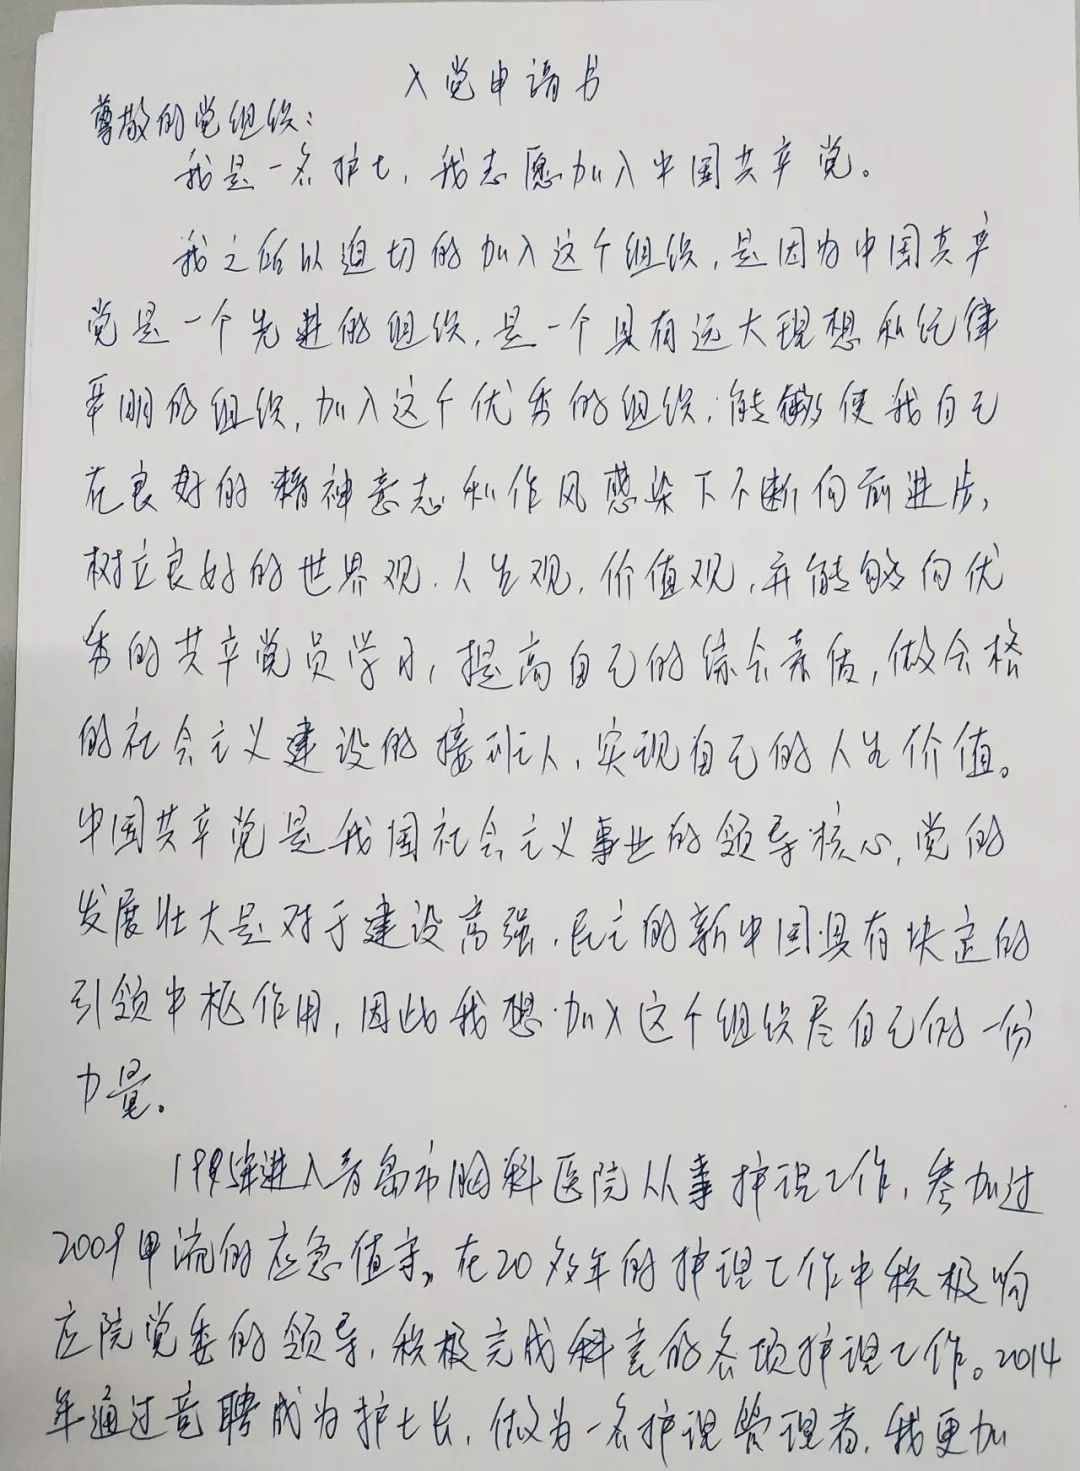 入党申请书
尊敬的党组织：
我是一名护士，我志愿加入中国共产党。
我之所以迫切的加入这个组织，是因为中国共产
党是一个先进的组织，是一个具有远大理想和纪律
严明的组织，加入这个优秀的组织，能够使我自己
在良好的精神意志和作风感染下不断向前进步，
树立良好的世界观、人生观，价值观，并能够向优
秀的共产党员学习，提高自己的综合素质，做合格
的社会主义建设的接班人，实现自己的人生价值。
中国共产党是我国社会主义事业的领导核心，党的
发展壮大是对于建设富强、民主的新中国具有决定的
引领中枢作用，因此我想加入这个组织尽自己的一份
力量。
1995年进入青岛市胸科医院从事护理工作，参加过
2009甲流的应急值守。在20多年的护理工作中积极响
应院党委的领导，积极完成科室的各项护理工作。2014
年通过竞聘成为护士长，做为一名护理管理者，我更加